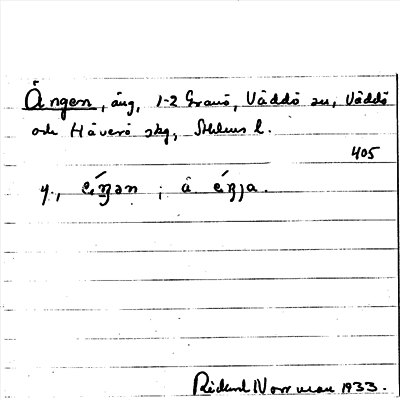 Ängen, äng, 1-2 Gransö, Väddö sn, Väddö
och Häverö skg, Sthlms l.
405
y., éŋən ; å éŋja.
Rickard Norrman 1933.